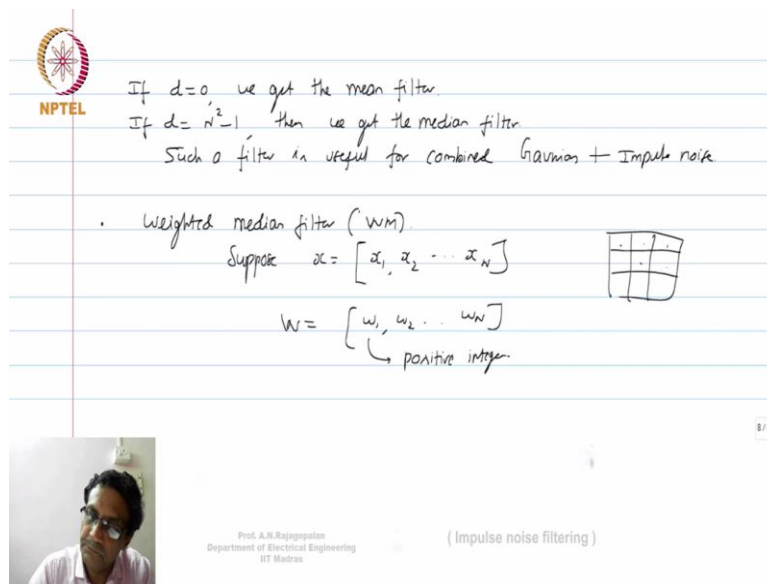 NPTEL
If d=0, we get the mean filter.
If d= N²-1, then we get the median filter.
Such a filter is useful for combined Gaussian + Impulse noise.
. Weighted median filter (WM).
Suppose x = [x₁, x₂ ... x_N]
W = [w₁, w₂ .. w_N]
↳ positive integer.
8/
Prof. A.N.Rajagopalan
Department of Electrical Engineering
IIT Madras
( Impulse noise filtering )